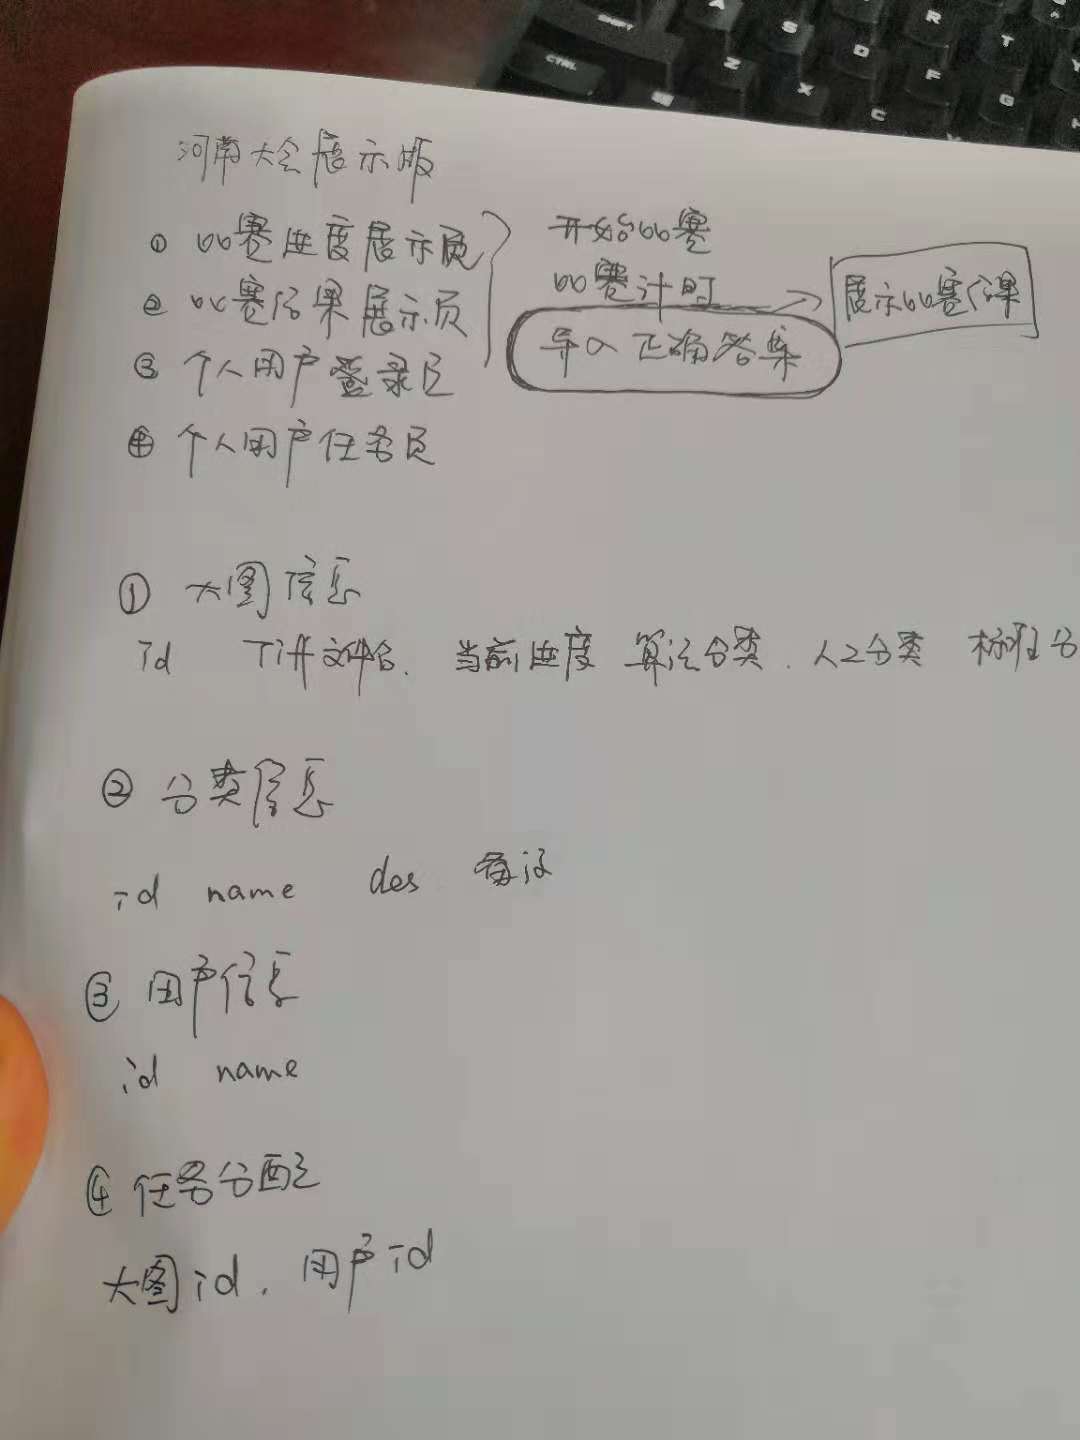 SHIFT A S D F G R T Y
CTRL Z X C H
河南大会展示版
① 比赛进度展示页
② 比赛结果展示页
③ 个人用户登录区
④ 个人用户任务页
开始比赛
比赛计时
导入正确答案
展示比赛结果
① 大图信息
id Tiff文件名. 当前进度 算法分类. 人工分类 标准分
② 分类信息
id name des 备注
③ 用户信息
id name
④ 任务分配
大图id. 用户id